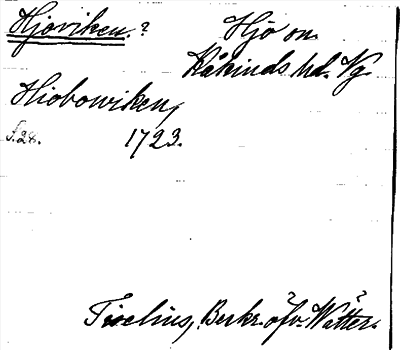 Hjoviken.?
Hjo on.
Kåkinds hd. Vg.
Hiobowiken,
s. 28. 1723.
Tiselius, Beskr. öfv. Wätter.